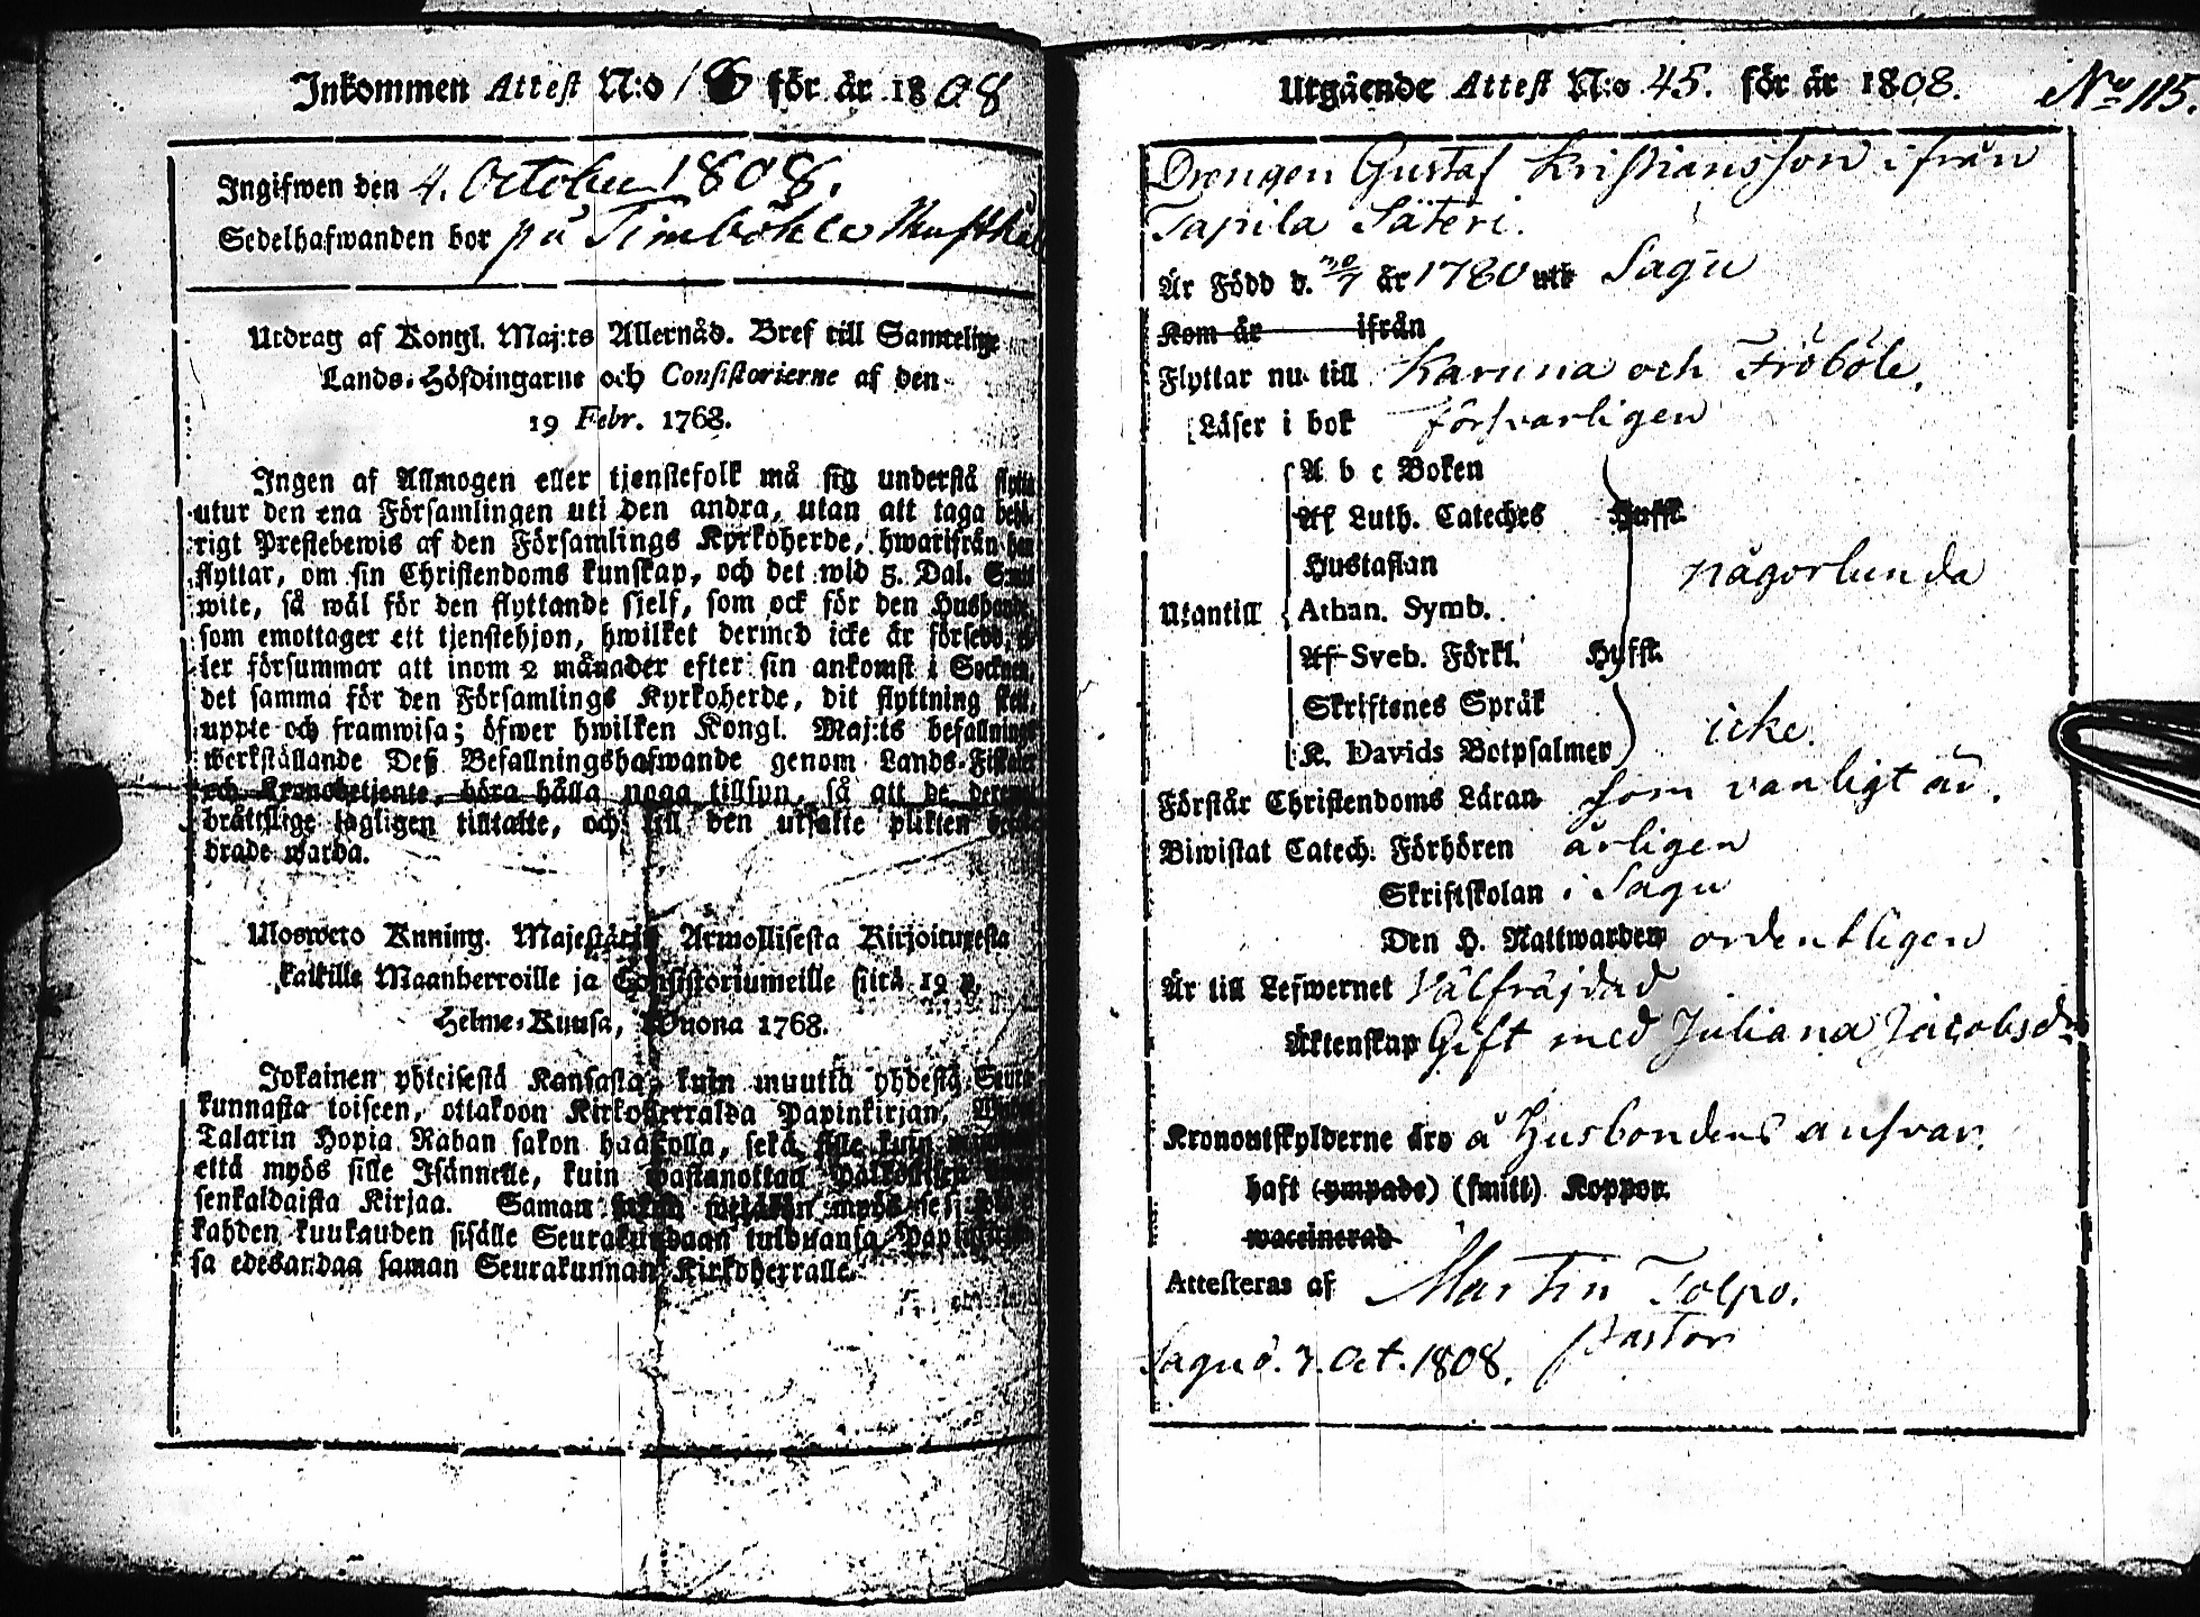 Inkommen Attest N:o för år 1808
Ingifwen den 4. October 1808.
Sedelhafwanden bor på Timböhle
Utdrag af Kongl. Maj:ts Allernåd. Bref till Samtelige
Lands-Höfdingarne och Consistorierne af den
19 Febr. 1768.
Ingen af Allmogen eller tjenstefolk må sig understå flytta
utur den ena Församlingen uti den andra, utan att taga behö-
rigt Prestebewis af den Församlings Kyrkoherde, hwarifrån han
flyttar, om sin Christendoms kunskap, och det wid 5. Dal. Smt
wite, så wäl för den flyttande sjelf, som ock för den Husbonde,
som emottager ett tjenstehjon, hwilket dermed icke är försedd, el-
ler försummar att inom 2 månader efter sin ankomst i Socknen,
det samma för den Församlings Kyrkoherde, dit flyttning skett,
uppte och framwisa; öfwer hwilken Kongl. Maj:ts befallnings
werkställande Deß Befallningshafwande genom Lands-Fiskaler
och Kronobetjente, böra hålla noga tillsyn, så att de
bråttslige lagligen tilltalte, och till den utsatte plikten
drade warda.
Ulosweto Kuning. Majestätin Armollisesta Kirjoituxesta
kaikille Maanherroille ja Consistoriumeille siitä 19 p.
Helme-Kuusa, Wuona 1768.
Jokainen yhteisestä Kansasta, kuin muutta yhdestä Seura-
kunnasta toiseen, ottakoon Kirkoherralda Papinkirjan,
Talarin Hopia Rahan sakon haastolla, sekä sille kuin
että myös sille Isännelle, kuin wastanottaa
senkaldaista Kirjaa. Saman myös
kahden kuukauden sisälle Seurakundaan tulduansa
sa edesandaa saman Seurakunnan Kirkoherralle.
Utgående Attest N:o 45. för år 1808. No 115.
Drengen Gustaf Kristiansson ifrån
Tapila Säteri.
Är Född d. år 1780 uti Sagu
Kom år ifrån
Flyttar nu till Karuna och Fröböle.
Läser i bok försvarligen
A b c Boken
Af Luth. Cateches Hufst.
Hustaflan någorlunda
Utantill Athan. Symb.
Af Sveb. Förkl. Hufst.
Skriftenes Språk
K. Davids Botpsalmer icke.
Förstår Christendoms Läran som vanligt är.
Biwistat Catech. Förhören årligen
Skriftskolan i Sagu
Den H. Nattwarden ordentligen
Är till Lefwernet Välfräjdad
Äktenskap Gift med Juliana Jacobsdr
Kronoutskylderne äro å Husbondens ansvar.
haft (ympade) (smitt) Koppor.
waccinerad
Attesteras af Martin Tolpo.
Pastor
Sagu d. 3. Oct. 1808.